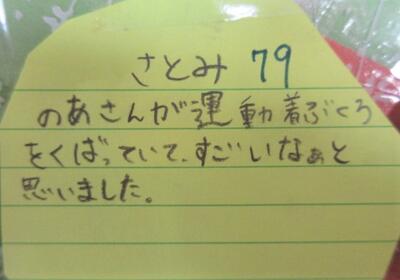 さとみ 79
のあさんが運動着ぶくろ
をくばっていて、すごいなぁと
思いました。